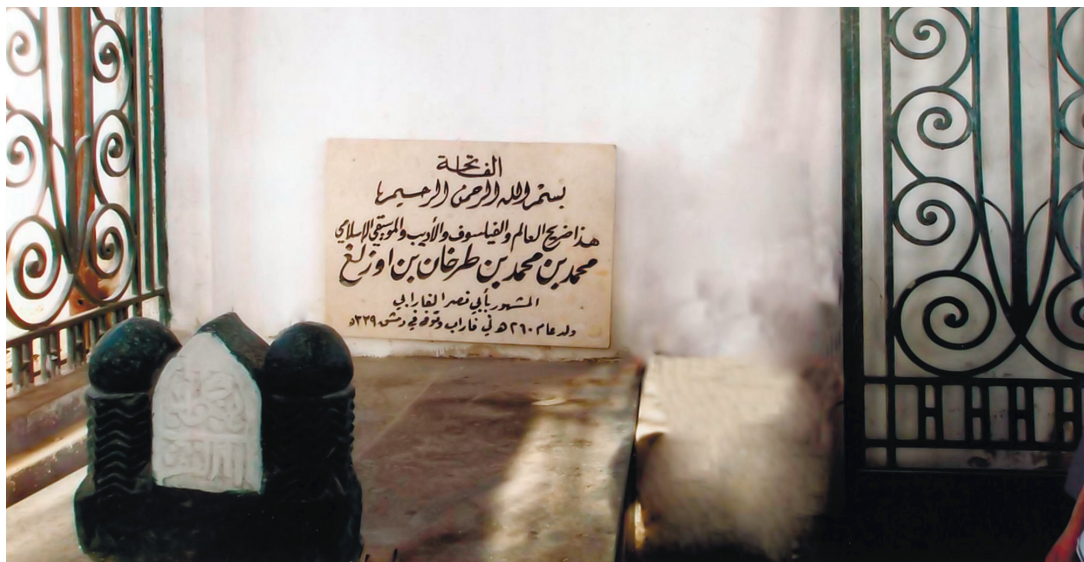 الفاتحة
بسم الله الرحمن الرحيم
هذا ضريح العالم والفيلسوف والأديب والموسيقي الإسلامي
محمد بن محمد بن طرخان بن اوزلغ
المشهور بأبي نصر الفارابي
ولد عام ٢٦٠ هـ في فاراب وتوفي في دمشق ٣٣٩ه